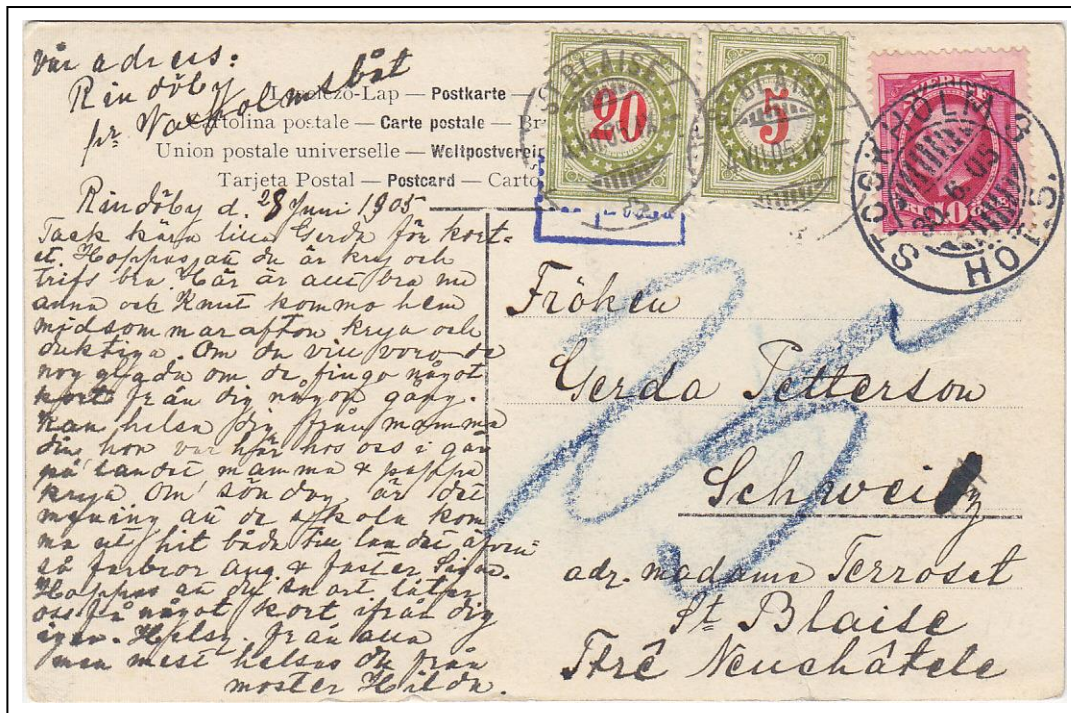 vår adress:
Rindöby
pr Waxholmsbåt
Lap — Postkarte —
Cartolina postale — Carte postale — Br
Union postale universelle — Weltpostverein
Tarjeta Postal — Postcard — Carto
ST. BLAISE
20
ST. BLAISE
5
SVERIGE
10 ÖRE
STOCKHOLM
30 6 05
Rindöby d. 28 Juni 1905
Tack kära lilla Gerda för kort-
et. Hoppas att du är kry och
trifs bra. Här är allt bra
anna och Knut kommo hem
midsommarafton krya och
duktiga. Om du vill voro de
nog glada om de fingo något
kort från dig någon gång.
Kan helsa dig från mamma
din, hon var här hos oss i går
på landet mamma & pappa
krya om söndag är det
mening att de kom
ma ut hit båda till landet äfven
så farbror Aug & faster
Hoppas att du snart låter
oss få något kort ifrån dig
igen. Hels. från alla
men mest helsas du från
moster Hilda.
25
Fröken
Gerda Petterson
Schweitz
adr. madame Terroset
St Blaise
Neuchâtele